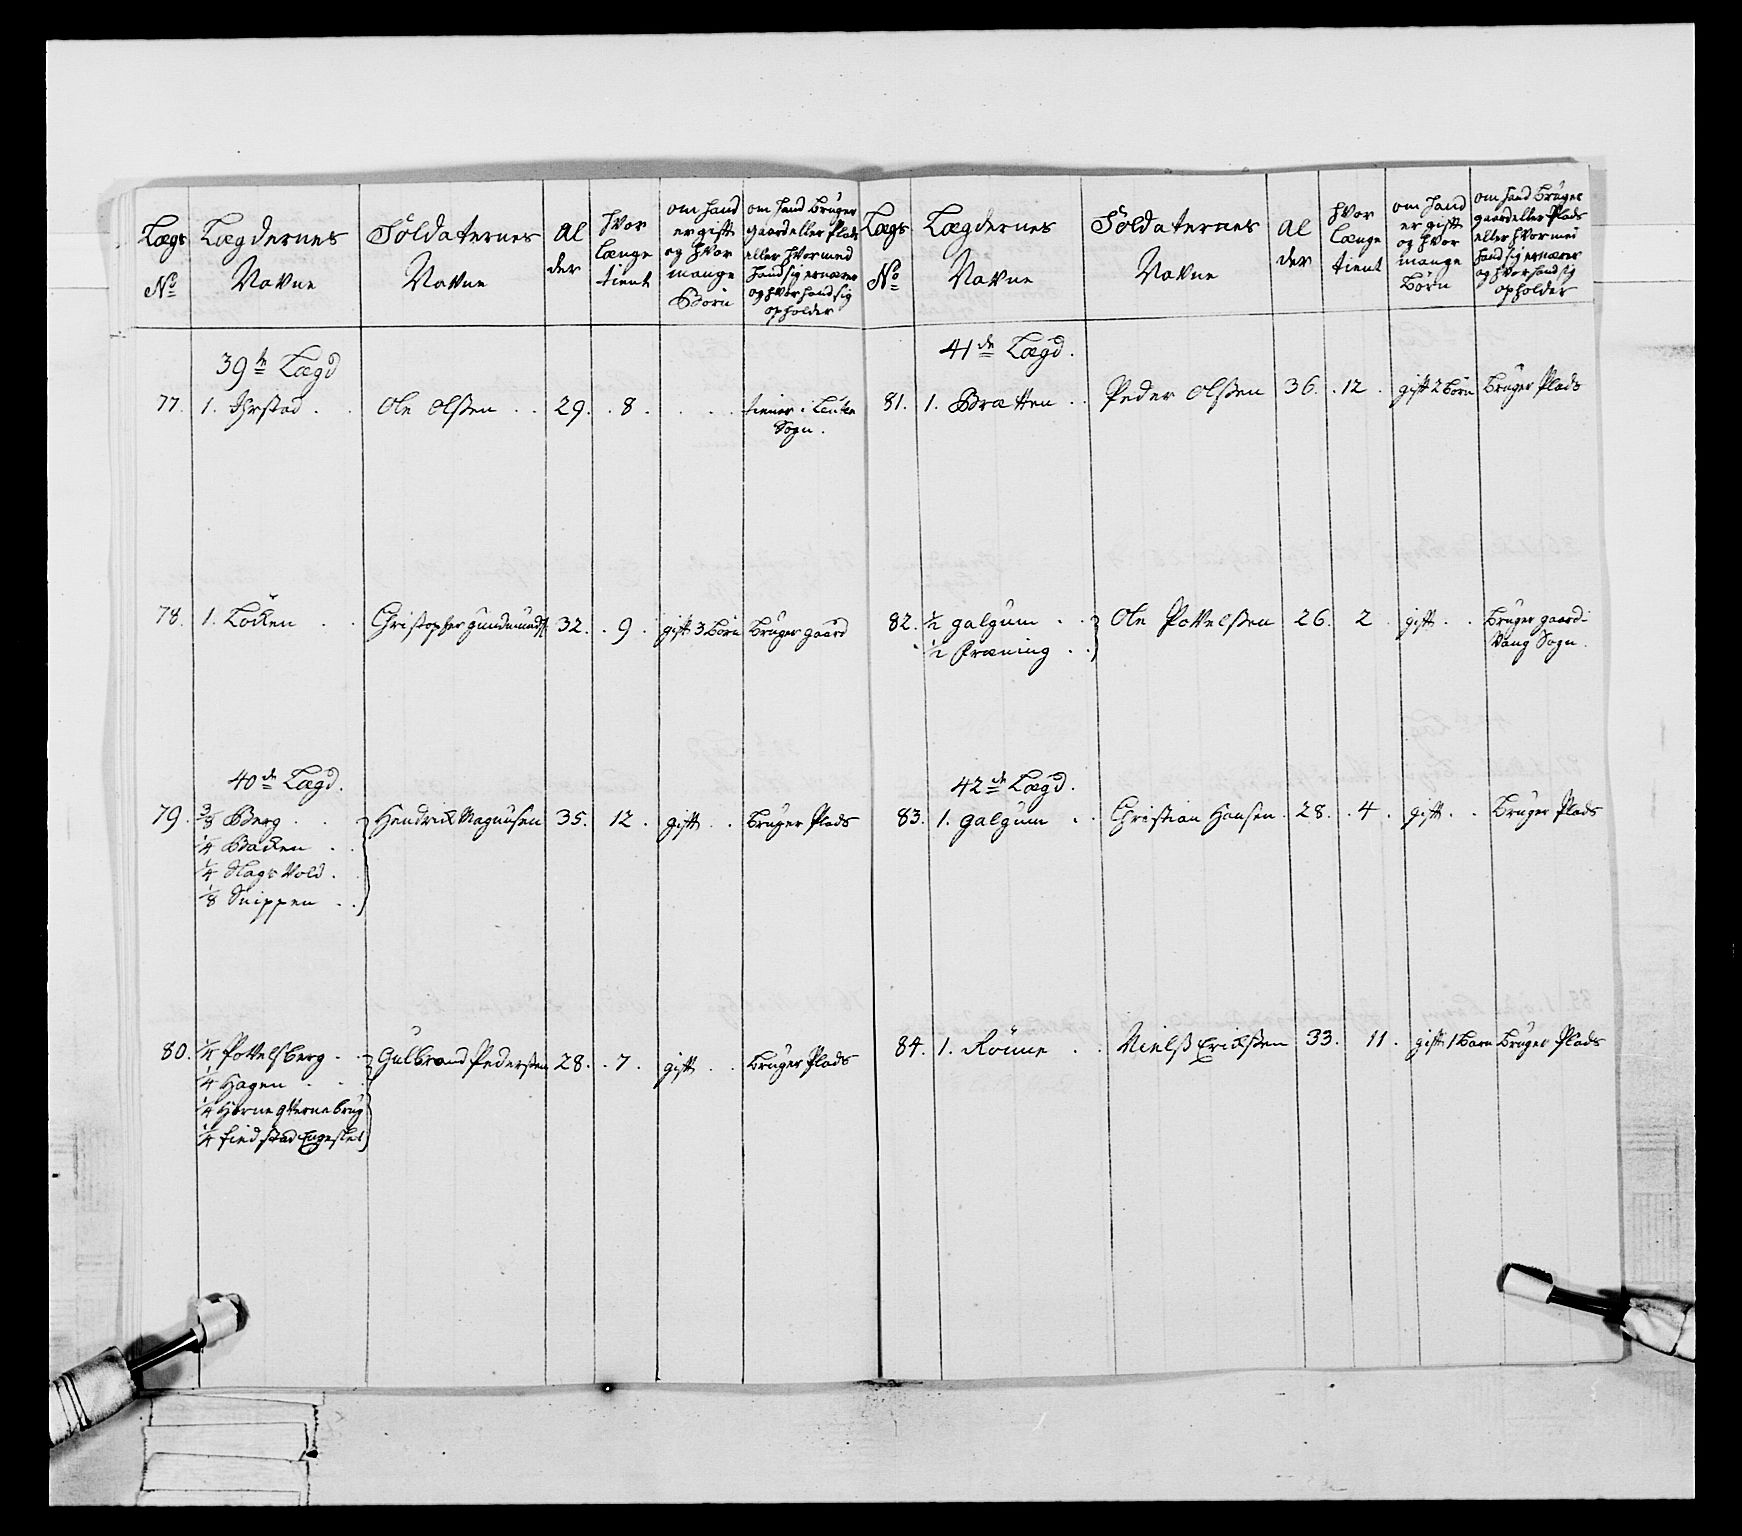 Lægs No
Lægdernes Navne
Soldaternes Navne
Al der
hvor længe tient
om hand er gift og hvor mange Børn
om hand bruger gaard eller Plads eller hvormed hand sig ernærer og hvor hand sig opholder
39te Lægd
77. 1. Ihrstad . . Ole Olsen . . 29. . 8 . . . . tiener i Leuten
Sogn.
78. 1. Löcken . . Christopher Gundmundß 32. . 9 . gift 3 Börn Bruger gaard
40de Lægd.
79. 3/8 Berg . . Hendrick Magnusen 35. 12 . gift . . Bruger Plads
1/4 Backen . .
1/4 Slags Vold . .
1/8 Snippen . .
80. 1/4 Povelsberg . . Gulbrand Pedersen 28. . 7 . gift . . Bruger Plads
1/4 Hagen . . .
1/4 Horne
1/4 Findstad
Lægs No
Lægdernes Navne
Soldaternes Navne
Al der
hvor længe tient
om hand er gift og hvor mange Börn
om hand Bruger gaard eller Plads eller hvormed hand sig ernærer og hvor hand sig opholder
41de Lægd.
81. 1. Bratten . . Peder Olsen 36. . 12 . gift 2 Börn Bruger Plads
82. 1/2 Galgum . . Ole Povelsen 26. 2 . gift . . Bruger gaard i
1/2 Præning . . Vang Sogn.
42de Lægd.
83. 1. Galgum . . Christian Hansen . 28. . 4 . gift . . Bruger Plads
84. 1. Rönne . . Nielß Ericksen 33. 11 . gift 1 Barn Bruger Plads